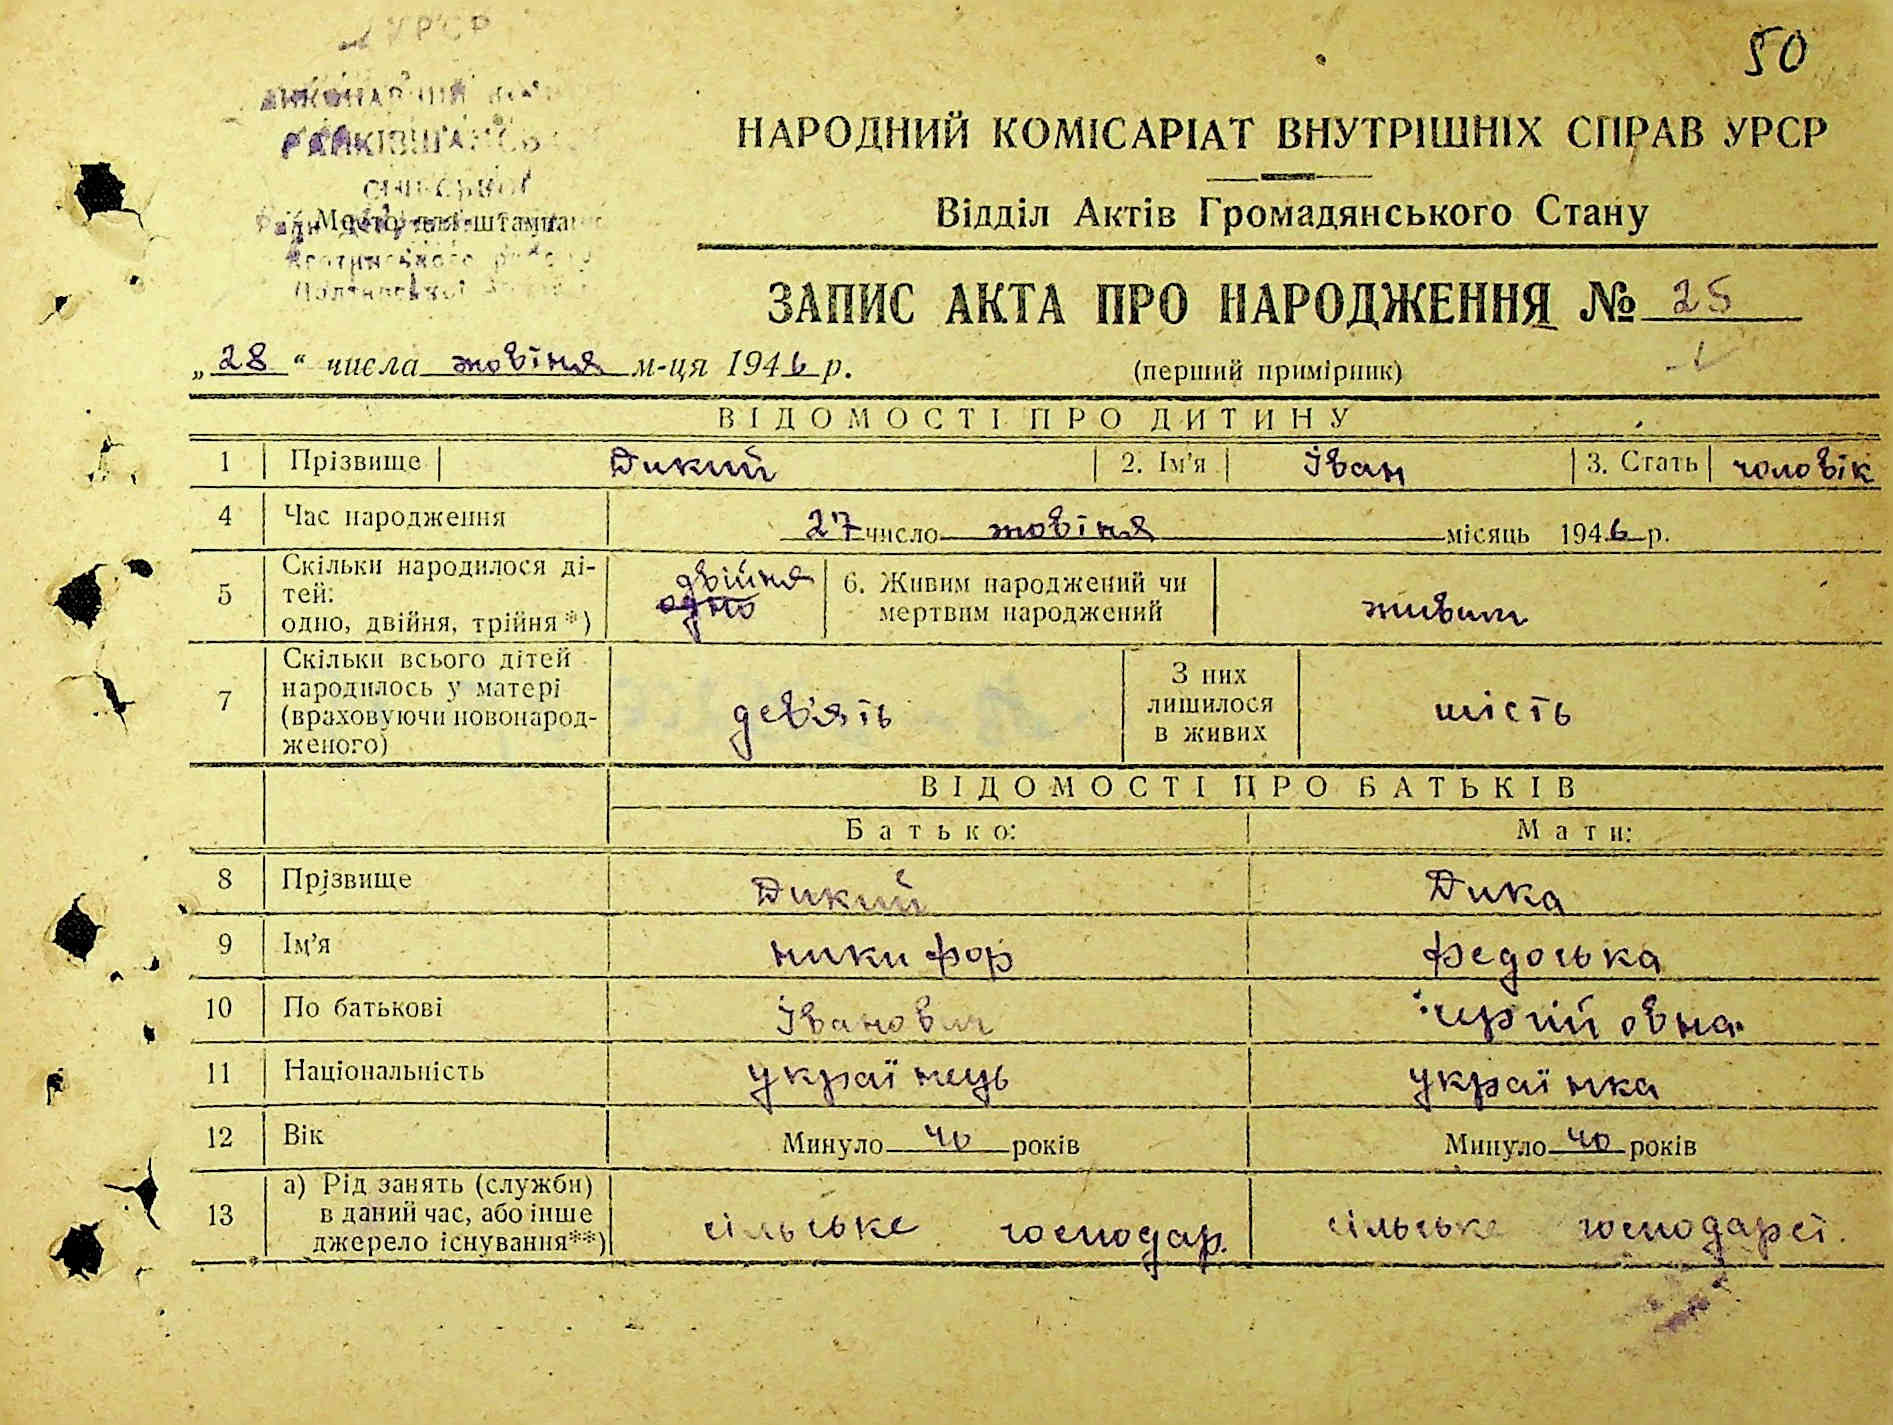 50
УРСР
РАНКІВЩАНСЬ
СІЛЬСЬКОЇ
Місце для штампа
НАРОДНИЙ КОМІСАРІАТ ВНУТРІШНІХ СПРАВ УРСР
Відділ Актів Громадянського Стану
ЗАПИС АКТА ПРО НАРОДЖЕННЯ № 25
„28“ числа жовтня м-ця 1946 р. (перший примірник)
ВІДОМОСТІ ПРО ДИТИНУ
1 Прізвище Дикий 2. Ім'я Іван 3. Стать чоловік
4 Час народження 27 число жовтня місяць 1946 р.
5 Скільки народилося ді-
тей:
одно, двійня, трійня*) двійня одно 6. Живим народжений чи
мертвим народжений живим
7 Скільки всього дітей
народилось у матері
(враховуючи новонарод-
женого) дев'ять З них
лишилося
в живих шість
ВІДОМОСТІ ПРО БАТЬКІВ
Батько: Мати:
8 Прізвище Дикий Дика
9 Ім'я никифор федоська
10 По батькові Іванович
11 Національність українець українка
12 Вік Минуло 40 років Минуло 40 років
13 а) Рід занять (служби)
в даний час, або інше
джерело існування**) сільське господар. сільське господарсі.